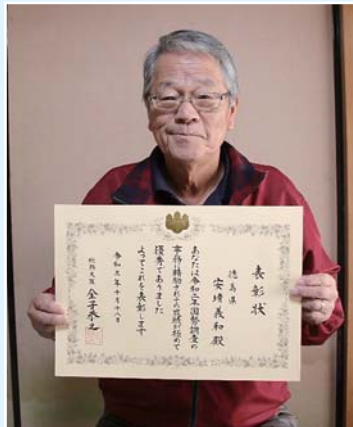 表彰状
徳島県
安崎義和殿
あなたは令和二年国勢調査の
事務に精励されその成績が極めて
優秀でありました
よってこれを表彰します
令和三年十月十八日
総務大臣 金子恭之